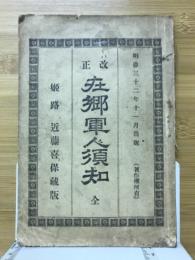 明治三十二年十一月出版
(著作権所有)
改正
在郷軍人須知
全
姫路 近藤喜保蔵版